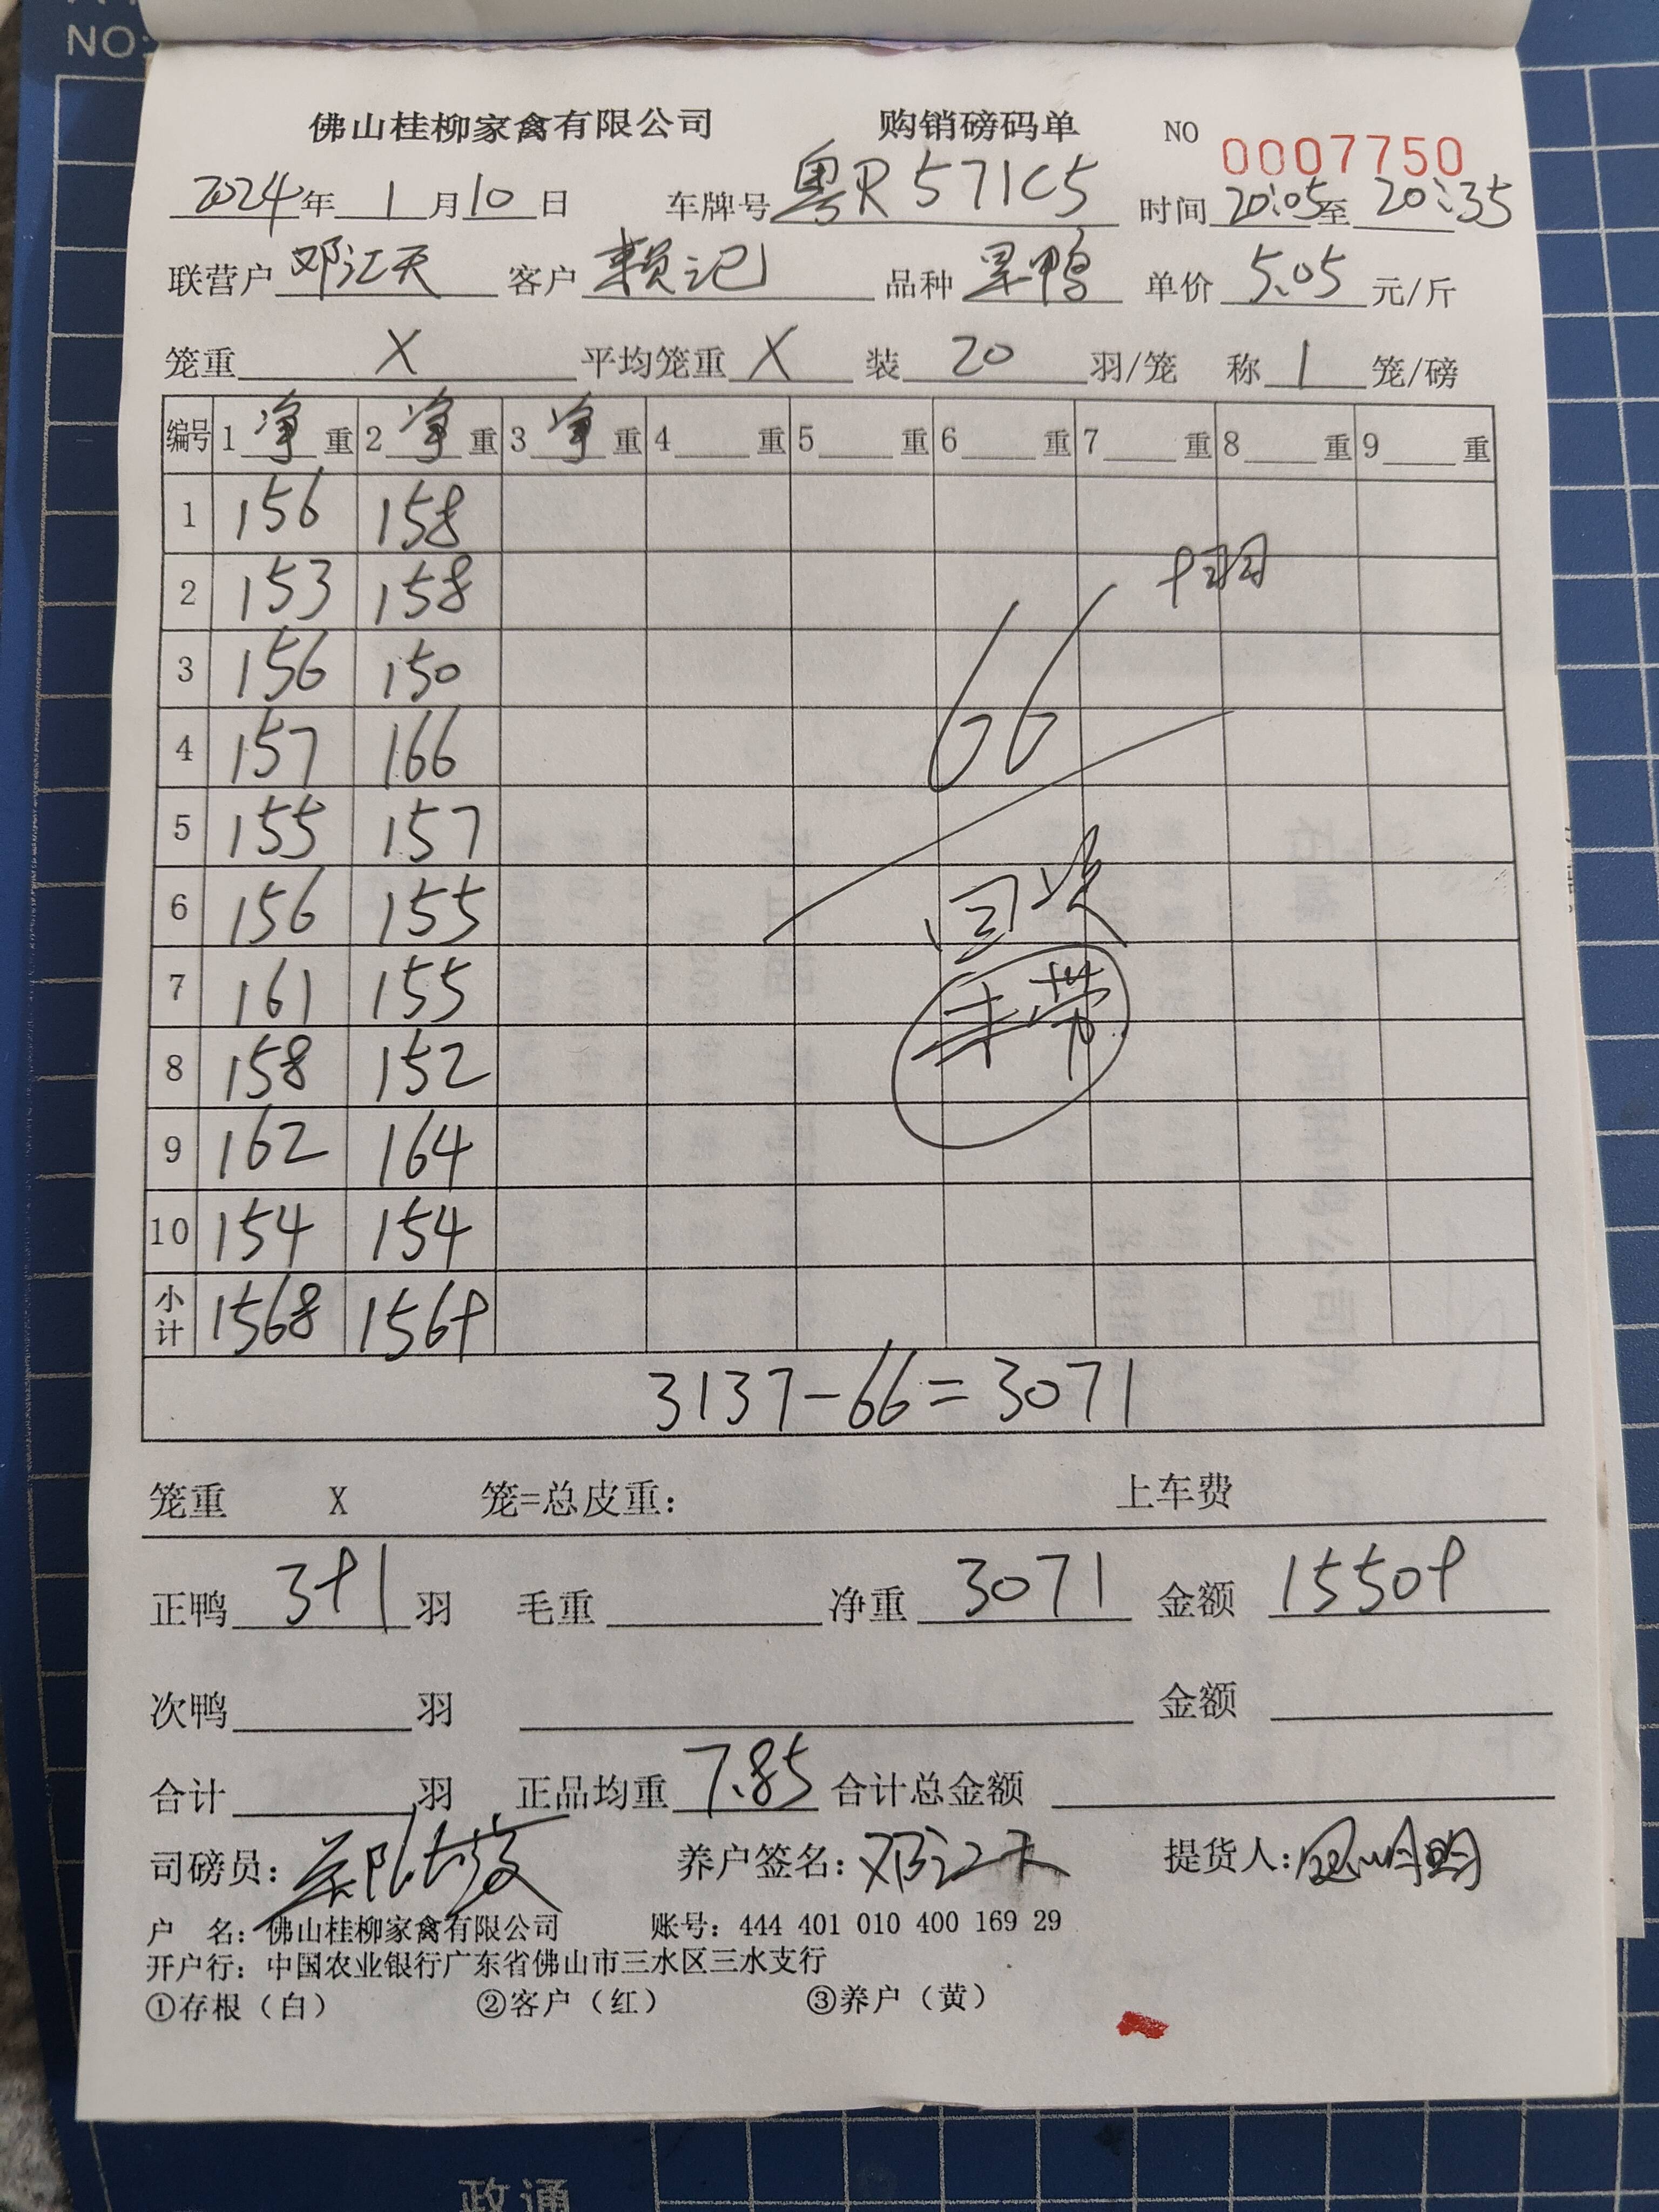 NO:
佛山桂柳家禽有限公司 购销磅码单 NO 0007750
2024年1月10日 车牌号粤R571C5 时间20:05至20:35
联营户邓江天 客户赖记 品种旱鸭 单价5.05元/斤
笼重X 平均笼重X 装20羽/笼 称1笼/磅
编号 1净重 2净重 3净重 4重 5重 6重 7重 8重 9重
1 156 158
2 153 158 9羽
3 156 150
4 157 166 66
5 155 157
6 156 155
7 161 155
8 158 152
9 162 164
10 154 154
小计 1568 1569
3137-66=3071
笼重 X 笼=总皮重: 上车费
正鸭391羽 毛重 净重3071 金额15509
次鸭 羽 金额
合计 羽 正品均重7.85合计总金额
司磅员: 养户签名:邓江天 提货人:
户 名:佛山桂柳家禽有限公司 账号:444 401 010 400 169 29
开户行:中国农业银行广东省佛山市三水区三水支行
①存根(白) ②客户(红) ③养户(黄)
政通